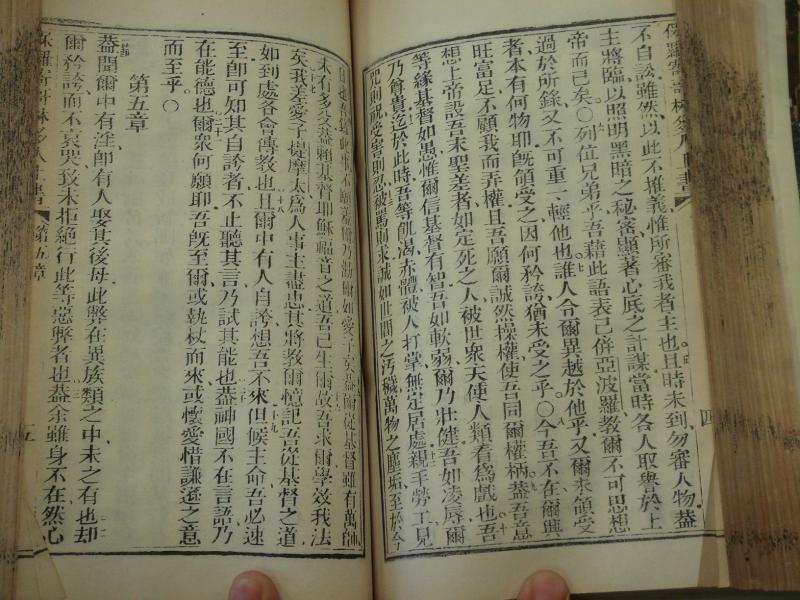 不自訟雖然以此不推義惟所審我者主也且時未到勿審人物蓋
主將臨以照明黑暗之秘密顯著心底之計謀當時各人取譽於上
帝而已矣○列位兄弟乎吾藉此語表己併亞波羅教爾不可思想
過於所錄又不可重一輕他也誰人令爾異越於他乎又爾未領受
者本有何物耶既領受之因何矜誇猶未受之乎○今吾不在爾興
旺富足不顧我而弄權且吾願爾誠然操權使吾同爾權柄蓋吾意
想上帝設吾末聖差者如定死之人被世衆天使人類看爲戲也吾
等緣基督如愚惟爾信基督有智吾如軟弱爾乃壯健吾如凌辱爾
乃尊貴迄於此時吾等飢渴赤體被人打掌無定居處親手勞工見
詈則祝受害則忍被罵則求誠如世間之汚穢萬物之塵垢至於今
未有多父蓋賴基督耶穌福音之道吾己生爾故吾求爾學效我法
矣我差愛子提摩太爲人事主盡忠其將教爾憶記吾從基督之道
如到處各會傳教也且爾中有人自誇想吾不來但候主命吾必速
至卽可知其自誇者不止聽其言乃試其能也蓋神國不在言語乃
在能德也爾衆何願耶吾旣至爾或執杖而來或懷愛惜謙遜之意
而至乎○
第五章
蓋聞爾中有淫卽有人娶其後母此弊在異族類之中未之有也却
爾矜誇而不哀哭致未拒絕行此等惡弊者也蓋余雖身不在然心
第五章